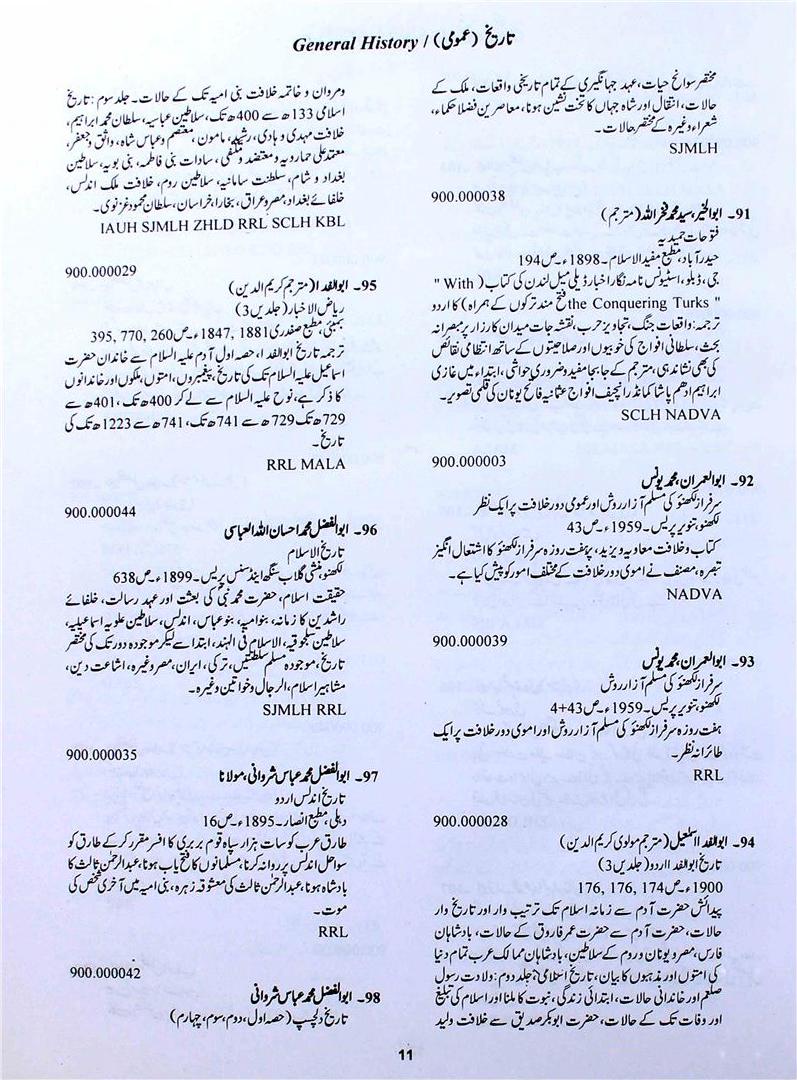 تاریخ (عمومی) / General History
مختصر سوانح حیات، عہد جہانگیری کے تمام تاریخی واقعات، ملک کے
حالات، انتقال اور شاہ جہاں کا تخت نشین ہونا، معاصرین فضلا حکماء،
شعراء وغیرہ کے مختصر حالات۔
SJMLH
900.000038
91۔ ابوالخیر، سید محمد فخر اللہ (مترجم)
فتوحات حمیدیہ
حیدرآباد، مطبع مفید الاسلام۔ 1898ء۔ ص 194
جی، ڈبلو، اسٹیونس نامہ نگار اخبار ڈیلی میل لندن کی کتاب (With "
" the Conquering Turks فتح مند ترکوں کے ہمراہ) کا اردو
ترجمہ: واقعات جنگ، تجاویز حرب، نقشہ جات میدان کارزار پر مبصرانہ
بحث، سلطانی افواج کی خوبیوں اور صلاحیتوں کے ساتھ انتظامی نقائص
کی بھی نشاندہی، مترجم کے جا بجا مفید وضروری حواشی، ابتداء میں غازی
ابراہیم ادھم پاشا کمانڈر انچیف افواج عثمانیہ فاتح یونان کی قلمی تصویر۔
SCLH NADVA
900.000003
92۔ ابوالعمران، محمد یونس
سرفراز لکھنؤ کی مسلم آزار روش اور عمومی دور خلافت پر ایک نظر
لکھنؤ، تنویر پریس۔ 1959ء۔ ص 43
کتاب وخلافت معاویہ ویزید، پر ہفت روزہ سرفراز لکھنؤ کا اشتعال انگیز
تبصرہ، مصنف نے اموی دور خلافت کے مختلف امور کو پیش کیا ہے۔
NADVA
900.000039
93۔ ابوالعمران، محمد یونس
سرفراز لکھنؤ کی مسلم آزار روش
لکھنؤ، تنویر پریس۔ 1959ء۔ ص 43+4
ہفت روزہ سرفراز لکھنؤ کی مسلم آزار روش اور اموی دور خلافت پر ایک
طائرانہ نظر۔
RRL
900.000028
94۔ ابوالفدا اسمٰعیل (مترجم مولوی کریم الدین)
تاریخ ابوالفدا اردو (جلدیں 3)
1900ء۔ ص 174، 176، 176
پیدائش حضرت آدم سے زمانہ اسلام تک ترتیب وار اور تاریخ وار
حالات، حضرت آدم سے حضرت عمر فاروق کے حالات، بادشاہان
فارس، مصر و یونان و روم کے سلاطین، بادشاہان ممالک عرب تمام دنیا
کی امتوں اور مذہبوں کا بیان، تاریخ اسلامی؛ جلد دوم: ولادت رسول
صلعم اور خاندانی حالات، ابتدائی زندگی، نبوت کا ملنا اور اسلام کی تبلیغ
اور وفات تک کے حالات، حضرت ابوبکر صدیق سے خلافت ولید
ومروان و خاتمہ خلافت بنی امیہ تک کے حالات۔ جلد سوم: تاریخ
اسلامی 133ھ سے 400ھ تک، سلاطین عباسیہ، سلطان محمد ابراہیم،
خلافت مہدی و ہادی، رشید، مامون، معتصم وعباس شاہ، واثق وجعفر،
معتمد علی حمارویہ ومعتضد و مکتفی، سادات بنی فاطمہ، بنی بویہ، سلاطین
بغداد و شام، سلطنت سامانیہ، سلاطین روم، خلافت ملک اندلس،
خلفائے بغداد، مصر وعراق، بخارا، خراسان، سلطان محمود غزنوی۔
IAUH SJMLH ZHLD RRL SCLH KBL
900.000029
95۔ ابوالفدا (مترجم کریم الدین)
ریاض الاخبار (جلدیں 3)
بمبئی، مطبع صفدری 1881، 1847ء۔ ص 260، 770، 395
ترجمہ تاریخ ابوالفدا، حصہ اول آدم علیہ السلام سے خاندان حضرت
اسماعیل علیہ السلام تک کی تاریخ، پیغمبروں، امتوں، ملکوں اور خاندانوں
کا ذکر ہے، نوح علیہ السلام سے لے کر 400ھ تک، 401ھ سے
729ھ تک 729ھ سے 741ھ تک، 741ھ سے 1223ھ تک کی
تاریخ۔
RRL MALA
900.000044
96۔ ابوالفضل محمد احسان اللہ العباسی
تاریخ الاسلام
لکھنؤ، منشی گلاب سنگھ اینڈ سنس پریس۔ 1899ء۔ ص 638
حقیقت اسلام، حضرت محمد نبیؐ کی بعثت اور عہد رسالت، خلفائے
راشدین کا زمانہ، بنوامیہ، بنوعباس، اندلس، سلاطین علویہ اسماعیلیہ،
سلاطین سلجوقیہ، الاسلام فی الہند، ابتدا سے لیکر موجودہ دور تک کی مختصر
تاریخ، موجودہ مسلم سلطنتیں، ترکی، ایران، مصر وغیرہ، اشاعت دین،
مشاہیر اسلام، الرجال وخواتین وغیرہ۔
SJMLH RRL
900.000035
97۔ ابوالفضل محمد عباس شروانی، مولانا
تاریخ اندلس اردو
دہلی، مطبع انصار۔ 1895ء۔ ص 16
طارق عرب کو سات ہزار سپاہ قوم بربری کا افسر مقرر کر کے طارق کو
سواحل اندلس پر روانہ کرنا، مسلمانوں کا فتح یاب ہونا، عبدالرحمٰن ثالث کا
بادشاہ ہونا، عبدالرحمٰن ثالث کی معشوقہ زہرہ، بنی امیہ میں آخری شخص کی
موت۔
RRL
900.000042
98۔ ابوالفضل محمد عباس شروانی
تاریخ دلچسپ (حصہ اول، دوم، سوم، چہارم)
11